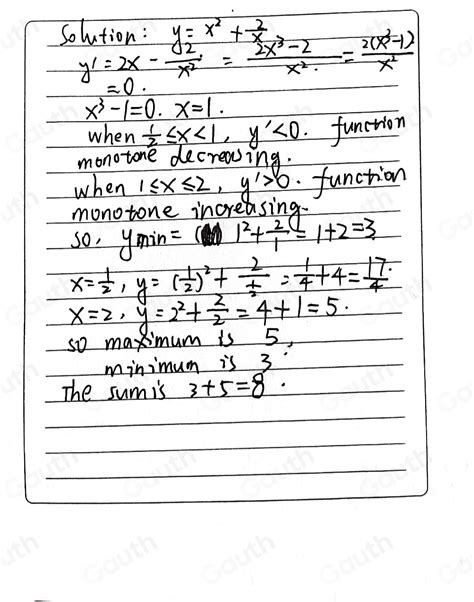 Solution: y = x² + 2/x
y' = 2x - 2/x² = 2x³-2/x² = 2(x³-1)/x²
= 0.
x³-1=0. x=1.
when 1/2 ≤x<1, y'<0. function
monotone decreasing.
when 1≤x≤2, y'>0. function
monotone increasing.
so, ymin = 1² + 2/1 = 1+2=3
x=1/2, y=(1/2)² + 2/(1/2) = 1/4+4=17/4.
x=2, y=2²+2/2=4+1=5.
so maximum is 5,
minimum is 3
The sum is 3+5=8.
Gauth